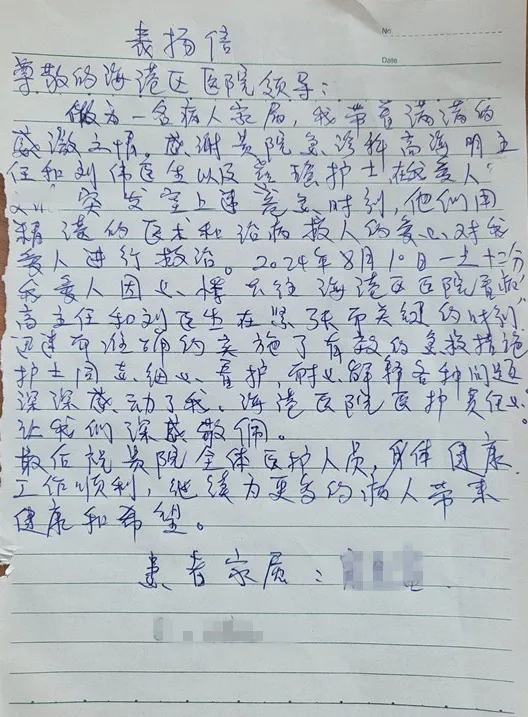 No
Date
表扬信
尊敬的海港区医院领导:
做为一名病人家属,我带着满满的
感激之情,感谢贵院急诊科高海明主
任和刘伟医生以及护士在我爱人
突发室上速危急时刻,他们用
精湛的医术和治病救人的爱心对我
爱人进行救治。2024年8月10日一点十二分
我爱人因心悸去往海港区医院看病
高主任和刘医生在紧张而关键的时刻
迅速而准确的实施了有效的急救措施
护士同志细心看护,耐心解释各种问题
深深感动了我。海港医院医护责任心
让我们深感敬佩。
最后祝贵院全体医护人员,身体健康
工作顺利,继续为更多的病人带来
健康和希望。
患者家属: